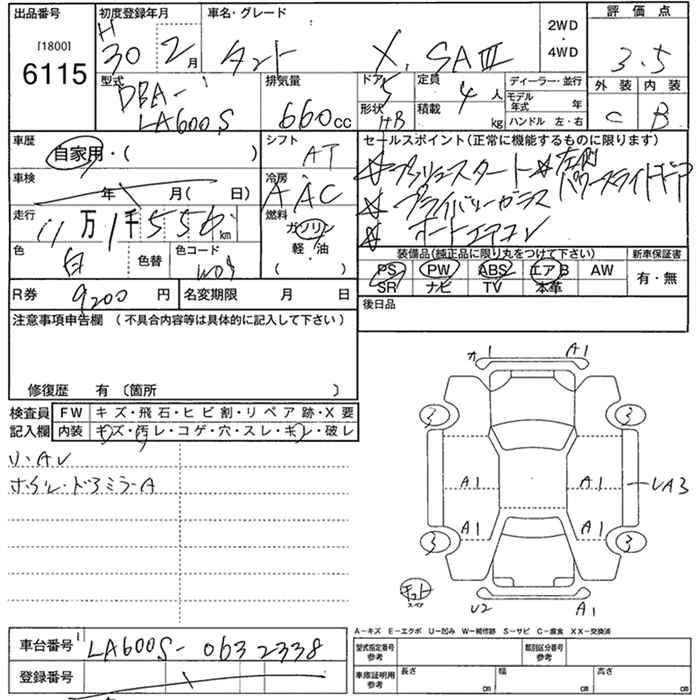 出品番号 初度登録年月 車名・グレード 2WD・4WD 評価点
[1800]
6115
H30年 2月 タント X, SAⅢ 3.5
外装 内装
C B
型式 DBA-LA600S 排気量 660cc ドア 5 形状 HB 定員 4人 積載 kg
ディーラー・並行
モデル年式 年
ハンドル 左・右
車歴 自家用・( )
シフト AT
車検 年 月( 日)
冷房 AAC
走行 11万1千556km
燃料 ガソリン 軽・油 ( )
色 白 色替 色コード W09
R券 9200円 名変期限 月 日
セールスポイント(正常に機能するものに限ります)
☆プッシュスタート ☆左側パワースライドドア
☆プライバシーガラス
☆オートエアコン
装備品(純正品に限り丸をつけて下さい) 新車保証書
PS PW ABS エアB AW 有・無
SR ナビ TV 本革
後日品
注意事項申告欄 (不具合内容等は具体的に記入して下さい)
修復歴 有 〔箇所 〕
検査員記入欄 FW キズ・飛石・ヒビ割・リペア跡・X要
内装 キズ・汚レ・コゲ・穴・スレ・キレ・破レ
リ・AU
ホイル・ドアミラーA
A1
3 3
A1 A1 UA3
A1 A1
3 3
スペア
U2 A1
A−キズ E−エクボ U−凹み W−補修跡 S−サビ C−腐食 XX−交換済
車台番号 LA600S-0632338
登録番号
型式指定番号 参考 類別区分番号 参考
車庫証明用 参考 長さ cm 幅 cm 高さ cm